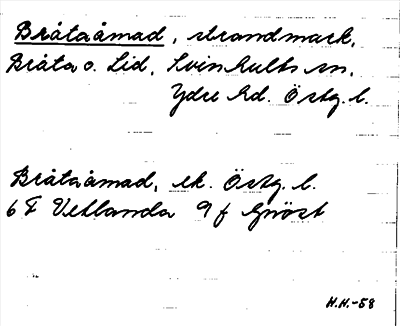 Bråtaåmad, strandmark,
Bråta o. Lid, Svinhults sn,
Ydre hd. Östg. l.
Bråtaåmad, ek. Östg. l.
6 F Vetlanda 9 f Gnöst
H.H.-58